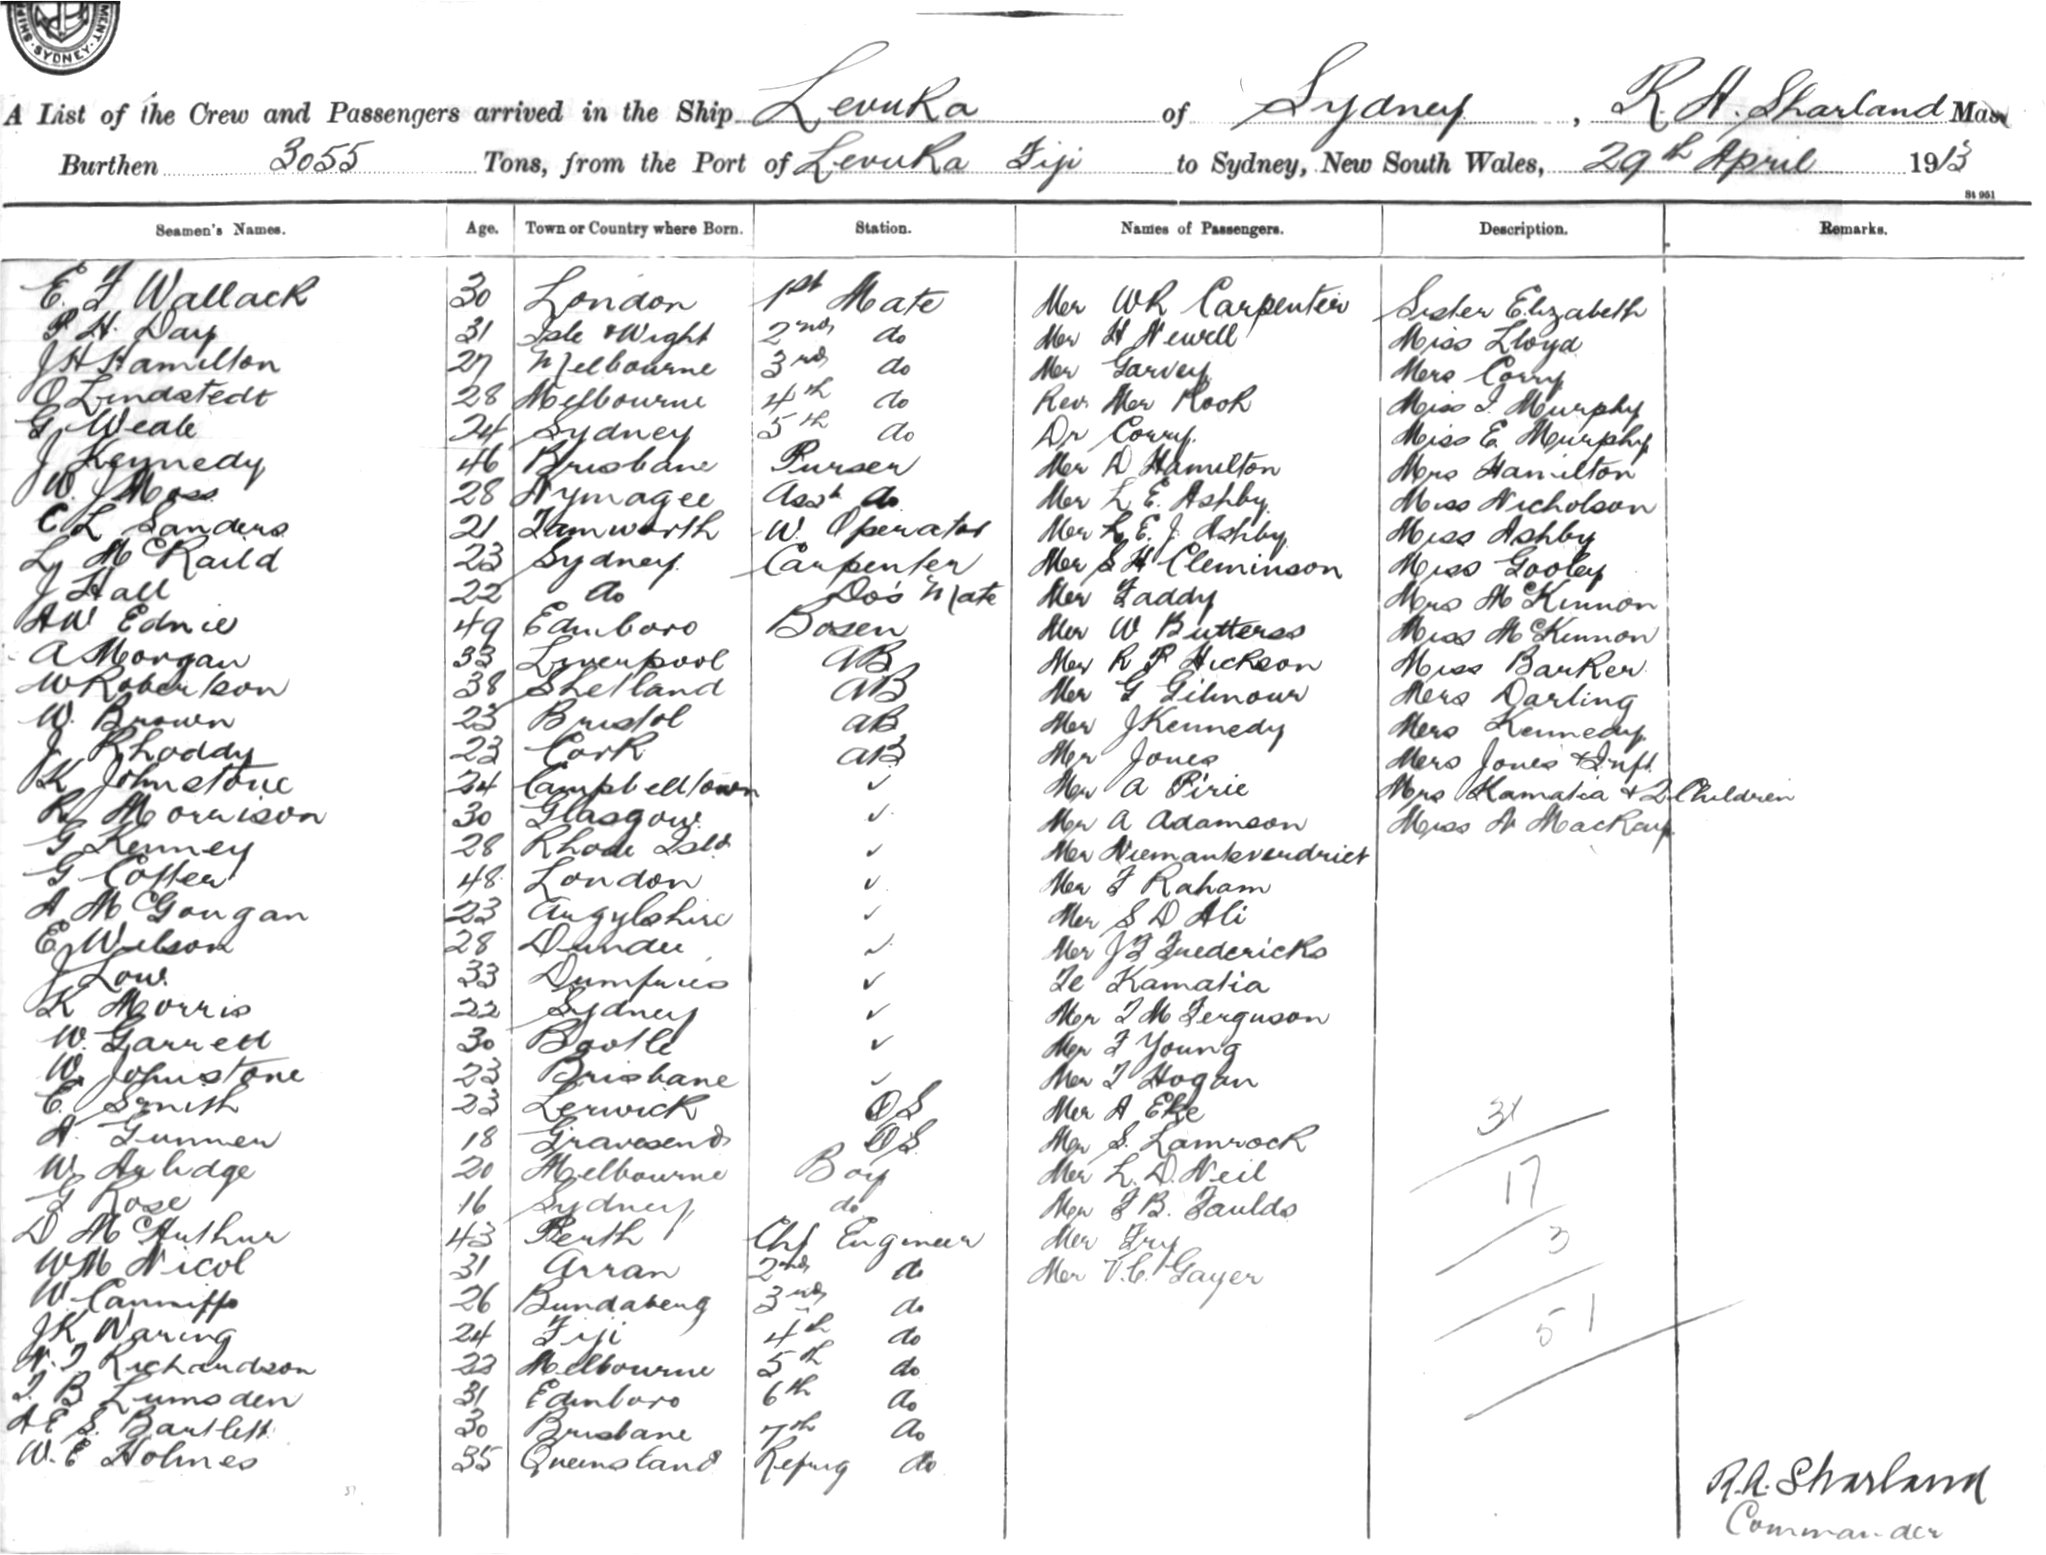 SYDNEY
A List of the Crew and Passengers arrived in the Ship Levuka of Sydney, R. H. Sharland Mas
Burthen 3055 Tons, from the Port of Levuka Fiji to Sydney, New South Wales, 29th April 1913
St 961
Seamen's Names. Age. Town or Country where Born. Station. Names of Passengers. Description. Remarks.
E. F Wallack 30 London 1st Mate Mr WR Carpenter Sister Elizabeth
P. H. Day 31 Isle Wight 2nd do Mr H Newell Miss Lloyd
J H Hamilton 27 Melbourne 3rd do Mr Garvey Mrs Corry
O Lindstedt 28 Melbourne 4th do Rev. Mr Rook Miss I. Murphy
G Weale 24 Sydney 5th do Dr Corry Miss E Murphy
J Kennedy 46 Brisbane Purser Mr D Hamilton Mrs Hamilton
W. J Moss 28 Nymagee Asst do Mr L E. Ashby Miss Nicholson
C L Sanders 21 Tamworth W. Operator Mr L. E. J. Ashby Miss Ashby
L McRaild 23 Sydney Carpenter Mr S H Cleminson Miss Gooley
J Hall 22 do Do's Mate Mr Faddy Mrs McKinnon
AW Ednie 49 Edinboro Bosen Mr W Butterss Miss McKinnon
A Morgan 33 Liverpool AB Mr R P Hickson Miss Barker
W Robertson 38 Shetland AB Mr G Gilmour Mrs Darling
W. Brown 23 Bristol AB Mr J Kennedy Mrs Kennedy
J Rhoddy 23 Cork AB Mr Jones Mrs Jones & Inft.
K Johnstone 24 Campbelltown ✓ Mr A Pirie Mrs Kamatia & 2 Children
R Morrison 30 Glasgow ✓ Mr A Adamson Miss A MacKay
G Kenney 28 Rhode Isld ✓ Mr Niemantsverdriet
G Cotter 48 London ✓ Mr F Raham
A McGougan 23 Argylshire ✓ Mr S D Ali
E Wilson 28 Dundee ✓ Mr J F Fredericks
J Low 33 Dumfries ✓ Te Kamatia
K Morris 22 Sydney ✓ Mr T M Ferguson
W. Garrett 30 Bootle ✓ Mr F Young
W. Johnstone 23 Brisbane ✓ Mr T Hogan
E. Smith 23 Lerwick OS Mr A Eke
A. Gunner 18 Gravesend OS Mr S. Lamrock 31
W. Aulidge 20 Melbourne Boy Mr L. D. Neil 17
G Rose 16 Sydney do Mr F B. Faulds
D McArthur 43 Perth Chf Engineer Mr Fry 3
WM Nicol 31 Arran 2nd do Mr V. C. Gayer
W. Canniffe 26 Bundaberg 3rd do
JK Waring 24 Fiji 4th do 51
N. T Richardson 22 Melbourne 5th do
T. B Lumsden 31 Edinboro 6th do
A E S. Bartlett 30 Brisbane 7th do
W. E Holmes 35 Queensland Refrig do
R. H. Sharland
Commander